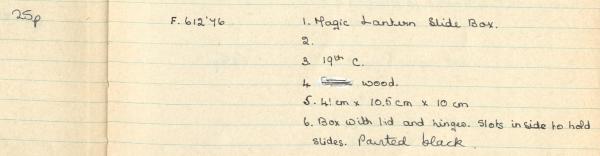 25p F.612'76 1. Magic Lantern Slide Box.
2.
3. 19th C.
4. wood.
5. 41 cm x 10.5 cm x 10 cm
6. Box with lid and hinges. Slots inside to hold
slides. Painted black.